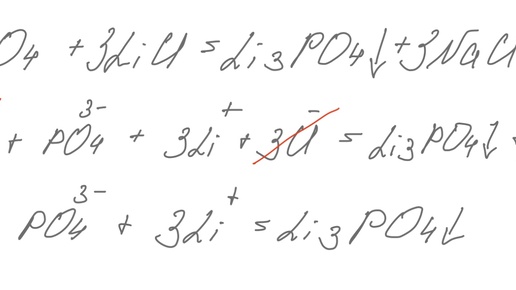 O₄ + 3LiCl = Li₃PO₄↓ + 3NaCl
+ PO₄³⁻ + 3Li⁺ + 3Cl⁻ = Li₃PO₄↓
PO₄³⁻ + 3Li⁺ = Li₃PO₄↓